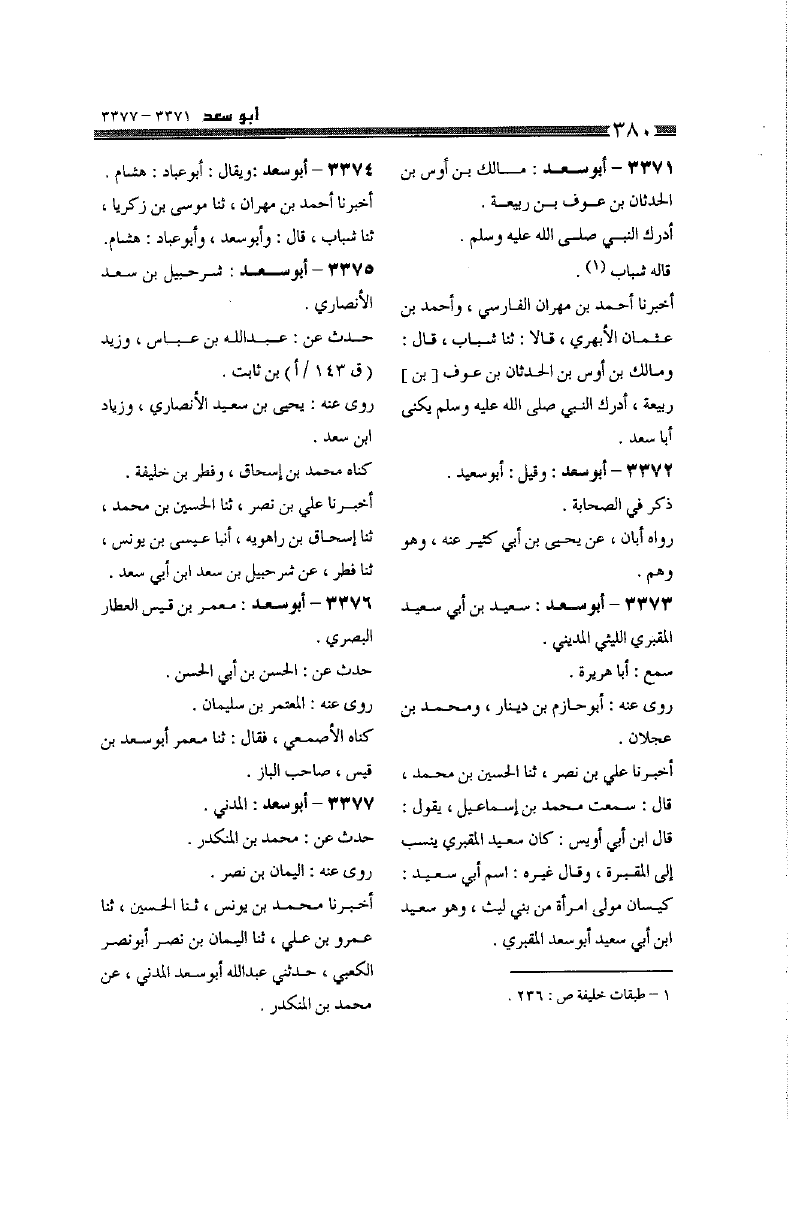 أبو سعد ٣٣٧١ – ٣٣٧٧
٣٨٠
٣٣٧١ – أبو سعد : مالك بن أوس بن
الحدثان بن عوف بن ربيعة .
أدرك النبي صلى الله عليه وسلم .
قاله شباب (١) .
أخبرنا أحمد بن مهران الفارسي ، وأحمد بن
عثمان الأبهري ، قالا : ثنا شباب ، قال :
ومالك بن أوس بن الحدثان بن عوف [ بن ]
ربيعة ، أدرك النبي صلى الله عليه وسلم يكنى
أبا سعد .
٣٣٧٢ – أبو سعد : وقيل : أبو سعيد .
ذكر في الصحابة .
رواه أبان ، عن يحيى بن أبي كثير عنه ، وهو
وهم .
٣٣٧٣ – أبو سعد : سعيد بن أبي سعيد
المقبري الليثي المديني .
سمع : أبا هريرة .
روى عنه : أبو حازم بن دينار ، ومحمد بن
عجلان .
أخبرنا علي بن نصر ، ثنا الحسين بن محمد ،
قال : سمعت محمد بن إسماعيل ، يقول :
قال ابن أبي أويس : كان سعيد المقبري ينسب
إلى المقبرة ، وقال غيره : اسم أبي سعيد :
كيسان مولى امرأة من بني ليث ، وهو سعيد
ابن أبي سعيد أبو سعد المقبري .
١ – طبقات خليفة ص : ٢٣٦ .
٣٣٧٤ – أبو سعد :ويقال : أبو عباد : هشام .
أخبرنا أحمد بن مهران ، ثنا موسى بن زكريا ،
ثنا شباب ، قال : وأبو سعد ، وأبو عباد : هشام.
٣٣٧٥ – أبو سعد : شرحبيل بن سعد
الأنصاري .
حدث عن : عبدالله بن عباس ، وزيد
( ق ١٤٣ / أ ) بن ثابت .
روى عنه : يحيى بن سعيد الأنصاري ، وزياد
ابن سعد .
كناه محمد بن إسحاق ، وفطر بن خليفة .
أخبرنا علي بن نصر ، ثنا الحسين بن محمد ،
ثنا إسحاق بن راهويه ، أنبا عيسى بن يونس ،
ثنا فطر ، عن شرحبيل بن سعد ابن أبي سعد .
٣٣٧٦ – أبو سعد : معمر بن قيس العطار
البصري .
حدث عن : الحسن بن أبي الحسن .
روى عنه : المعتمر بن سليمان .
كناه الأصمعي ، فقال : ثنا معمر أبو سعد بن
قيس ، صاحب الباز .
٣٣٧٧ – أبو سعد : المدني .
حدث عن : محمد بن المنكدر .
روى عنه : اليمان بن نصر .
أخبرنا محمد بن يونس ، ثنا الحسين ، ثنا
عمرو بن علي ، ثنا اليمان بن نصر أبو نصر
الكعبي ، حدثني عبدالله أبو سعد المدني ، عن
محمد بن المنكدر .